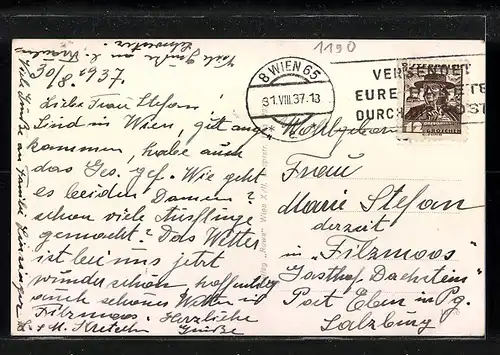 1190
Viele Grüße an L.
Schwester.
30/8. 1937.
Liebe Frau Stefan!
Sind in Wien, gut ange-
kommen, habe auch
das Ges. gef. Wie geht
es beiden Damen?
schon viele Ausflüge
gemacht? Das Wetter
ist bei uns jetzt
wunderschön, hoffentlich
auch schönes Wetter in
Filzmoos. Herzliche
Grüße
Viele Grüße an Familie
8 WIEN 65
31.VIII.37.13
VERSENDET
EURE
DURCH
GROSCHEN
Wohlgeboren
Frau
Marie Stefan
derzeit
in "Filzmoos"
Gasthof "Dachstein"
Post Eben in Pg.
Salzburg